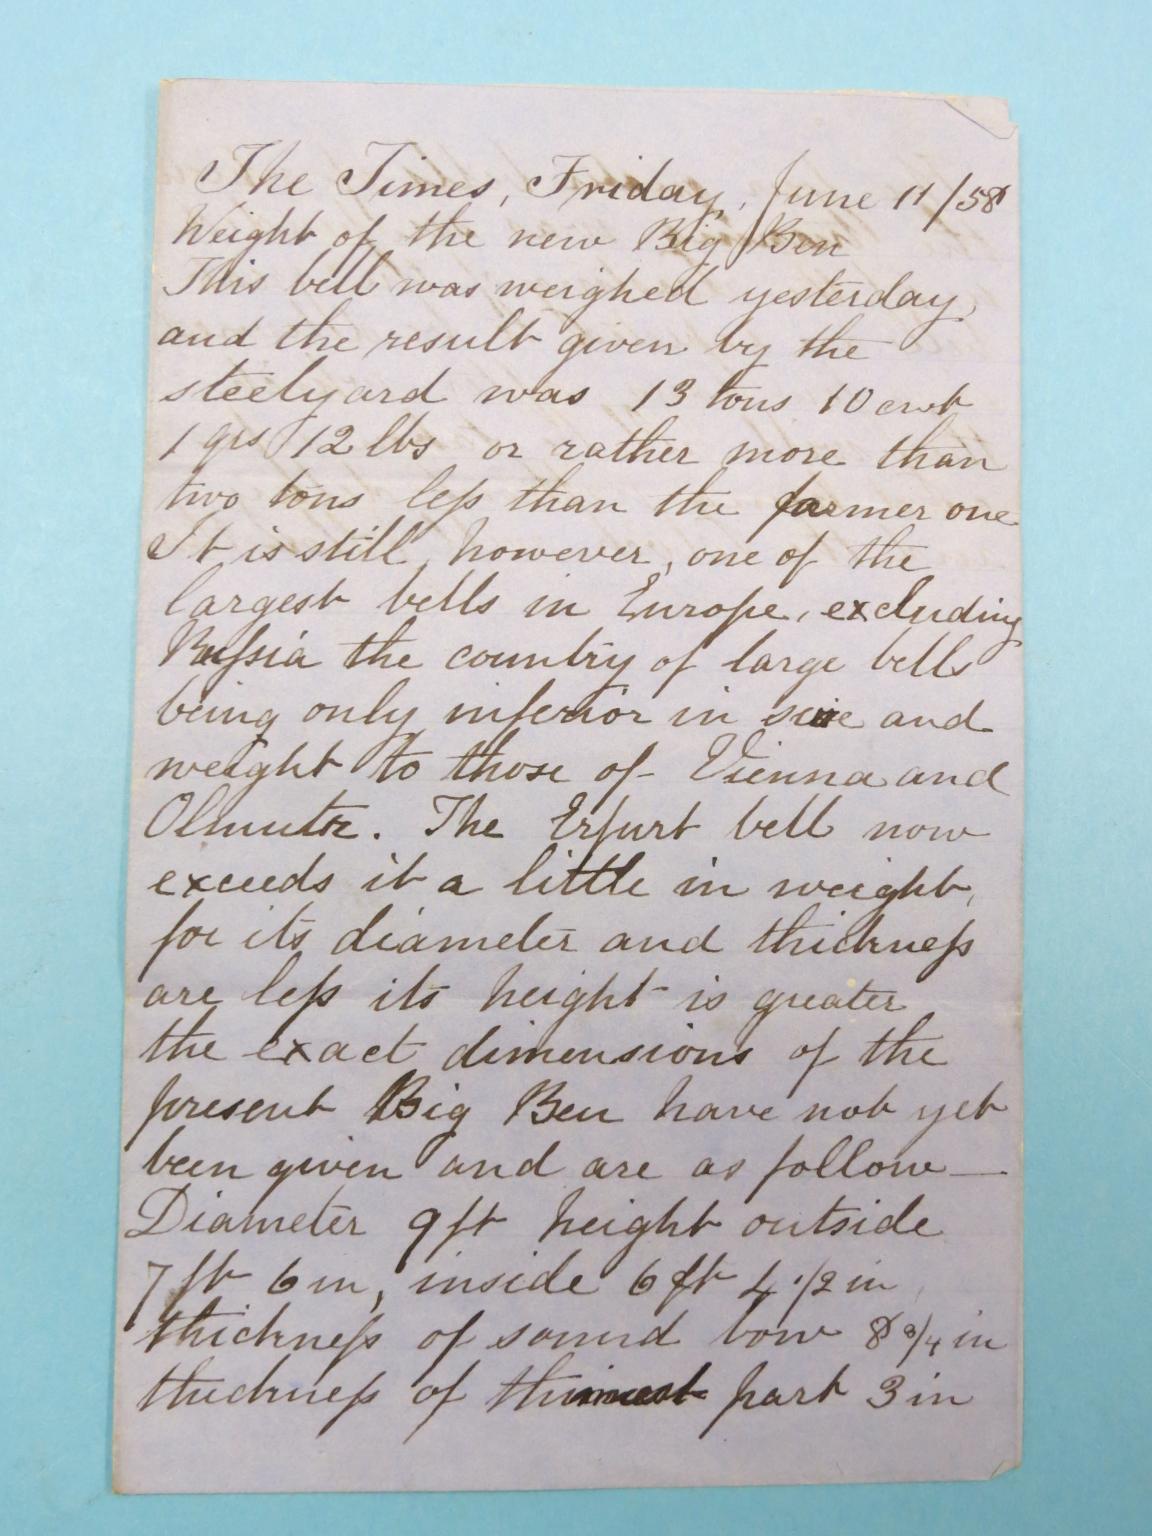 The Times, Friday, June 11/58
Weight of the new Big Ben
This bell was weighed yesterday,
and the result given by the
steelyard was 13 tons 10 cwt
1 qrs 12 lbs or rather more than
two tons less than the former one
It is still, however, one of the
largest bells in Europe, excluding
Russia the country of large bells
being only inferior in size and
weight to those of Vienna and
Olmutz. The Erfurt bell now
exceeds it a little in weight,
for its diameter and thickness
are less its height is greater
the exact dimensions of the
present Big Ben have not yet
been given and are as follow—
Diameter 9ft height outside
7 ft 6 in, inside 6 ft 4 1/2 in,
thickness of sound bow 8 3/4 in
thickness of thinnest part 3 in